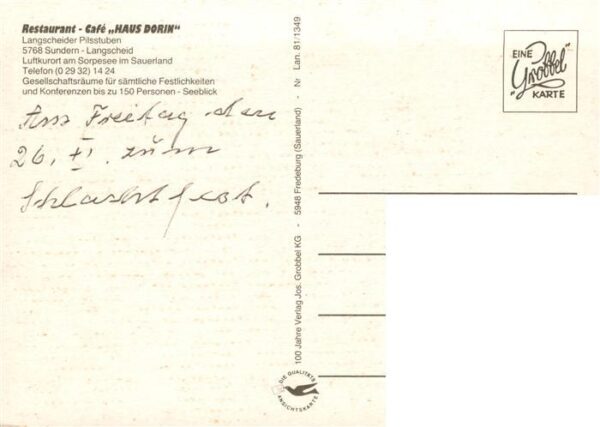 Restaurant - Café „HAUS DORIN“
Langscheider Pilsstuben
5768 Sundern - Langscheid
Luftkurort am Sorpesee im Sauerland
Telefon (0 29 32) 14 24
Gesellschaftsräume für sämtliche Festlichkeiten
und Konferenzen bis zu 150 Personen - Seeblick
Am Freitag den
26. XI. zum
Schlachtfest.
100 Jahre Verlag Jos. Grobbel KG - 5948 Fredeburg (Sauerland) - Nr Lan. 81:1349
EINE
„Grobbel“
KARTE
DIE QUALITÄTS
ANSICHTSKARTE